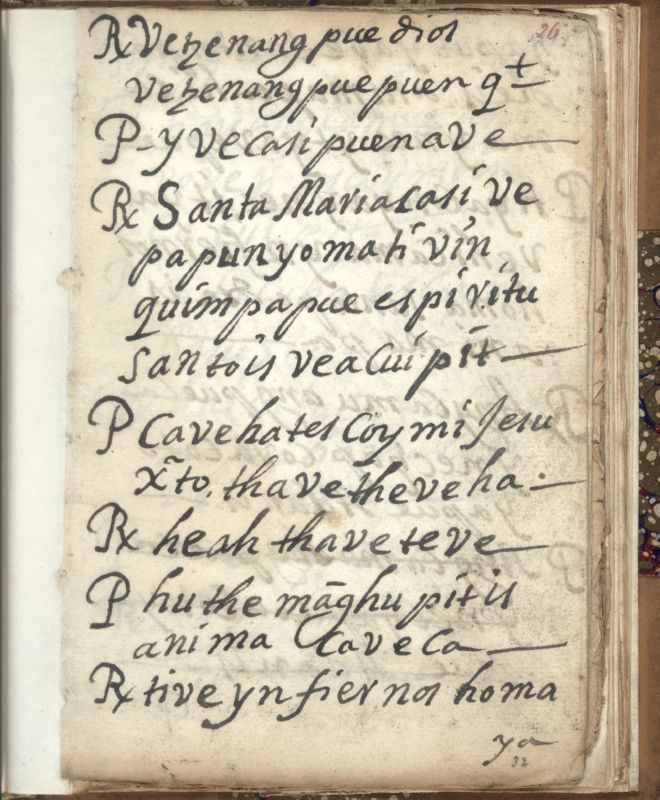 26
Rx Vetzenang pue dios
vetzenang pue puer q+
P - y ve casi puen a ve
Rx Santa Maria casi ve
papun yomati vin
quim pa pue espiritu
santo is vea cui pit
P Cave hates Coy mi Jesu
X̃to, thave the ve ha.
Rx heah thave te ve
P hu the mãghu pit is
anima Caveca
Rx ti ve yn fier nos homa
ya
32